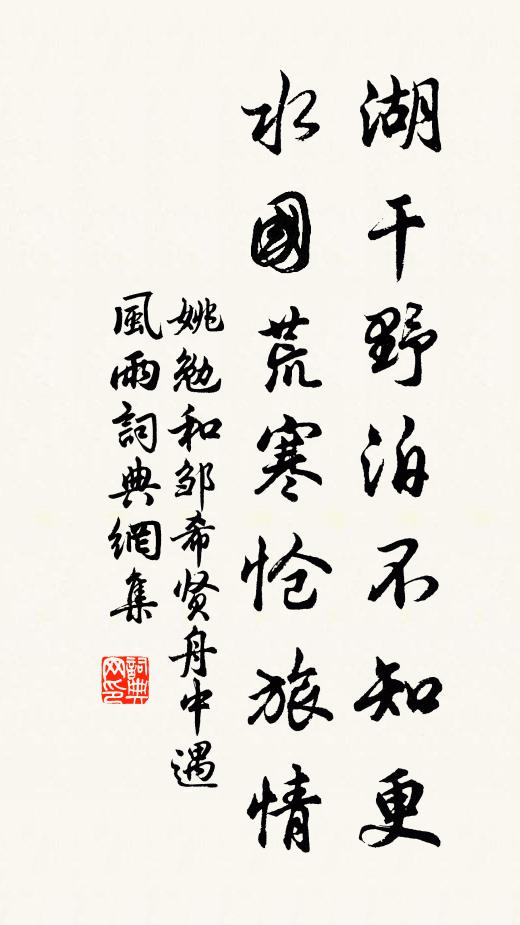 湖干野泊不知更
水國荒寒怆旅情
姚勉和邹希贤舟中遇
風雨詞典網集
詞典網印